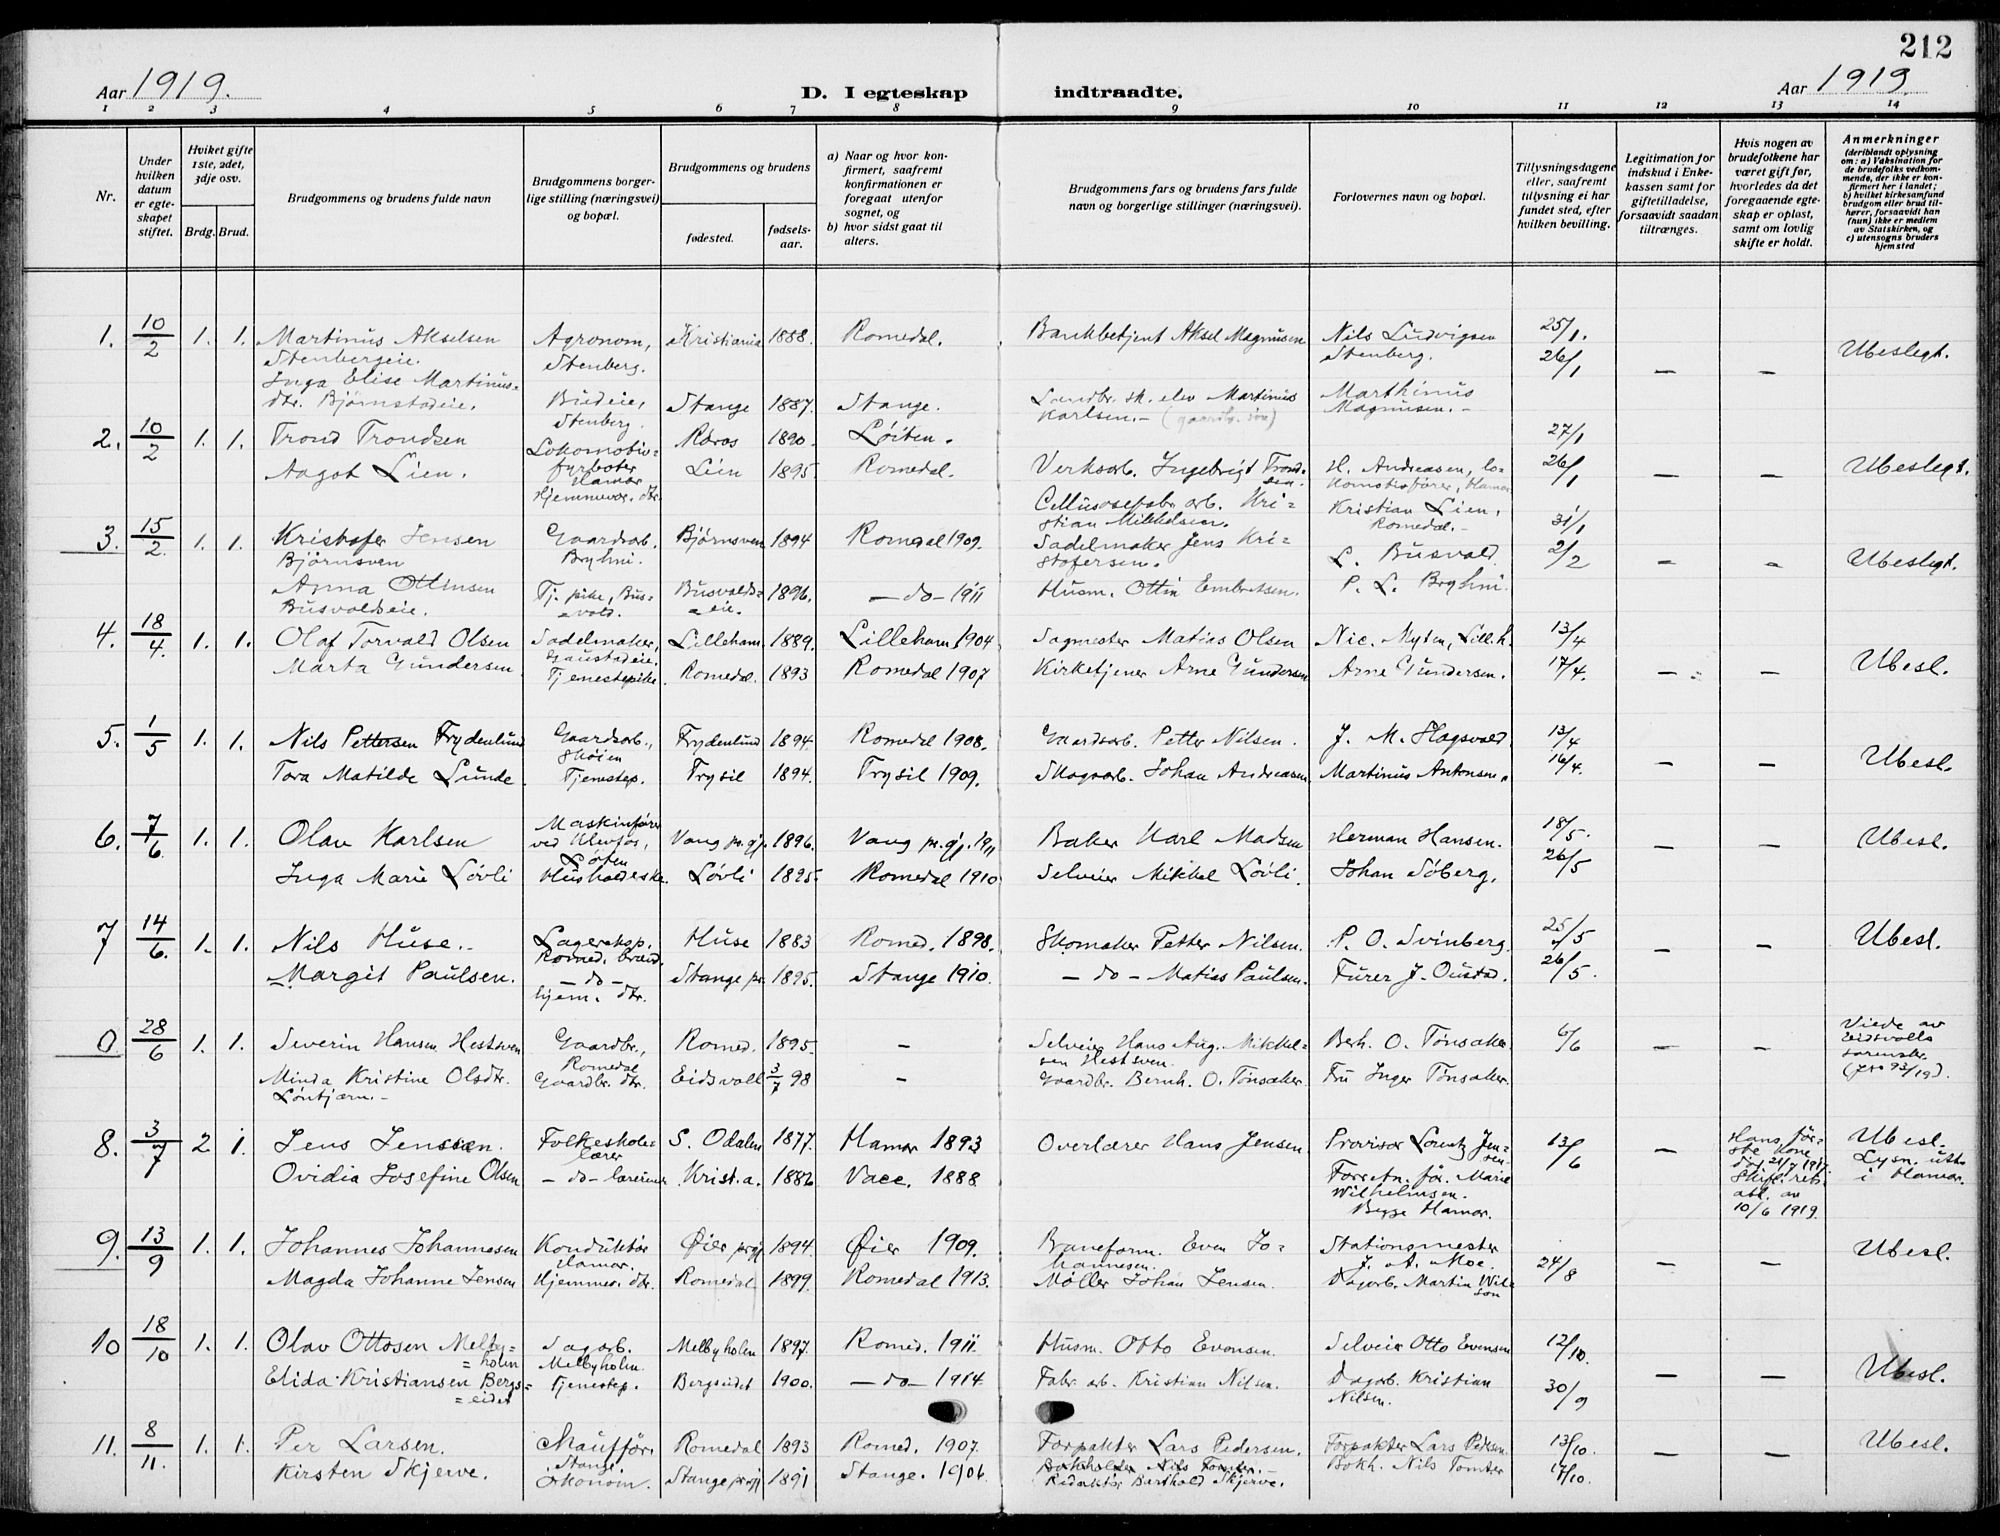 212
Aar 1919.
D. I egteskap indtraadte.
Aar 1919.
1 2 3 4 5 6 7 8 9 10 11 12 13 14
Nr.
Under hvilken datum er egteskapet stiftet.
Hvilket gifte 1ste, 2det, 3dje osv.
Brdg. Brud.
Brudgommens og brudens fulde navn
Brudgommens borgerlige stilling (næringsvei) og bopæl.
Brudgommens og brudens
fødested.
fødselsaar.
a) Naar og hvor konfirmert, saafremt konfirmationen er foregaat utenfor sognet, og
b) hvor sidst gaat til alters.
Brudgommens fars og brudens fars fulde navn og borgerlige stillinger (næringsvei).
Forlovernes navn og bopæl.
Tillysningsdagene eller, saafremt tillysning ei har fundet sted, efter hvilken bevilling.
Legitimation for indskud i Enkekassen samt for giftetilladelse, forsaavidt saadan tiltrænges.
Hvis nogen av brudefolkene har været gift før, hvorledes da det foregaaende egteskap er opløst, samt om lovlig skifte er holdt.
Anmerkninger (deriblandt oplysning om: a) Vaksination for de brudefolks vedkommende, der ikke er konfirmert her i landet; b) hvilket kirkesamfund brudgom eller brud tilhører, forsaavidt han (hun) ikke er medlem av Statskirken, og c) utensogns bruders hjemsted
1. 10/2 1. 1. Martinus Akselsen Agronom, Kristiania 1888. Romedal. Bankbetjent Aksel Magnusen Nils Ludvigsen 25/1.
Stenbergeie. Stenberg. Stenberg. 26/1 — — Ubeslegt.
Inga Elise Martinus= Budeie, Stange 1887. Stange. Landbr. sk. elev Martinus Marthinus
dtr. Bjørnstadeie. Stenberg. Karlsen.— (gaardbr. søn) Magnusen.—
2. 10/2 1. 1. Trond Trondsen Lokomotiv= Røros 1890. Løiten. 27/1
Aagot Lien. fyrbøter Lien 1895. Romedal. Verksarb. Ingebrigt Trondsen. H. Andreasen, lo= 26/1 — — Ubeslegt.
Hamar komotivfører, Hamar
Hjemmevær. dtr. Cellulosefabr. arb. Kri= Kristian Lien,
stian Mikkelsen. Romedal.—
3. 15/2. 1. 1. Kristofer Jensen Gaardsarb. Bjørnsven 1894 Romedal 1909. Sadelmaker Jens Kri= L. Busvold 31/1
Bjørnsven Bryhni. stofersen. 2/2 — — Ubeslegt.
Anna Ottinsen Tj. pike, Bus= Busvolds= 1896. — do — 1911 Husm. Ottin Embretsen. P. L. Bryhni.
Busvoldseie. vold. eie.
4. 18/4. 1. 1. Olaf Torvald Olsen Sadelmaker, Lilleham. 1889. Lilleham. 1904 Sagmester Matias Olsen Nic. Myten, Lill.h. 13/4
Gaustadeie.
Marta Gundersen Tjenestepike Romedal. 1893 Romedal 1907 Kirketjener Arne Gundersen Arne Gundersen. 17/4. — — Ubesl.
5. 1/5 1. 1. Nils Pettersen Frydenlund Gaardsarb., Frydenlund 1894. Romedal 1908. Gaardsarb. Petter Nilsen. J. M. Hagsvold. 13/4
Skøien
Tora Matilde Lunde Tjenestep. Trysil 1894. Trysil 1909. Skogsarb. Johan Andreassen Martinus Antonsen. 16/4. — — Ubesl.
6. 7/6. 1. 1. Olav Karlsen Maskinfører Vang pr.gj. 1896. Vang pr.gj. 1911 Baker Karl Madsen Herman Hansen. 18/5.
ved Klevfos, Løten — — Ubesl.
Inga Marie Løvli Husholdeske. Løvli 1895. Romedal 1910 Selveier Mikkel Løvli. Johan Søberg. 26/5
7 14/6. 1. 1. Nils Huse.— Lagereksp. Huse 1883 Romed. 1898. Skomaker Petter Nilsen. P. O. Svinberg. 25/5
Romed. brænd. — — Ubesl.
Margit Paulsen. — do — Stange pr. 1895. Stange 1910. — do — Matias Paulsen. Furer J. Oustad. 26/5.
hjem. dtr.
0 28/6 1. 1. Severin Hansen Hestsven Gaardbr., Romed. 1895. — Selveier Hans Aug. Mikkel= Berh. O. Tønsaker. 6/6 — — Viede av
Romedal sen Hestsven. Eidsvolls
Minda Kristine Olsdtr. Gaardbr. dtr. Eidsvoll 3/7 98 — Gaardbr. Bernh. O. Tønsaker. Fru Inger Tønsaker. sorenskr.
Løntjærn.— (Jno 93/19).
8. 3/7 2 1. Jens Jenssen. Folkeskole= S. Odalen 1877. Hamar 1893 Overlærer Hans Jensen Provisor Lorentz Jensen. 13/6 — Hans før= Ubesl.
lærer ste kone Lysn. utt.
Ovidia Josefine Olsen — do — lærerinne Krist.a. 1882 Vace. 1888 Forretn. før. Marie død 21/7 1917. i Hamar.
Wilhelmsen. Skift. ret=
Begge Hamar. att. av
10/6 1919.
9. 13/9 1. 1. Johannes Johannesen Konduktør Øier prgj 1894. Øier 1909. Baneform. Even Jo= Stationsmester Ubesl.
Hamar. hannesen. J. A. Moe.
Magda Johanne Jensen Hjemmev. dtr. Romedal 1899. Romedal 1913. Møller Johan Jensen. Dagarb. Martin Wilson 24/8 — —
10 18/10 1. 1. Olav Ottosen Melby= Sagarb. Melbyholm 1897. Romed. 1911. Husm. Otto Evensen. Selveier Otto Evensen 12/10.
=holm Melbyholm.
Elida Kristiansen Bergs= Tjenestep. Bergseidet 1900. — do — 1914. Fabr. arb. Kristian Nilsen. Dagarb. Kristian 30/9 — — Ubesl.
=eidet Nilsen.
11. 8/11. 1. 1. Per Larsen. Chauffør. Romedal 1893 Romed. 1907. Forpakter Lars Pedersen. Forpakter Lars Pedersen 13/10. Ubesl.
Stange. Bokholder Nils Tomter.—
Kirsten Skjerve. Økonom. Stange prgj 1891 Stange. 1906. Redaktør Barthold Skjerve. Bokh. Nils Tomter 17/10. — —